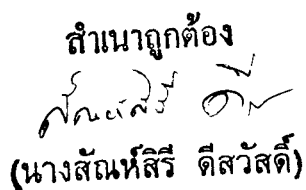 สำเนาถูกต้อง
(นางสัณห์สิริ ดีสวัสดิ์)